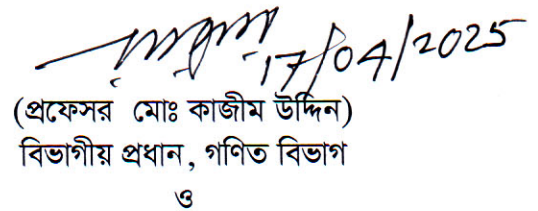 17/04/2025
(প্রফেসর মোঃ কাজীম উদ্দিন)
বিভাগীয় প্রধান, গণিত বিভাগ
ও